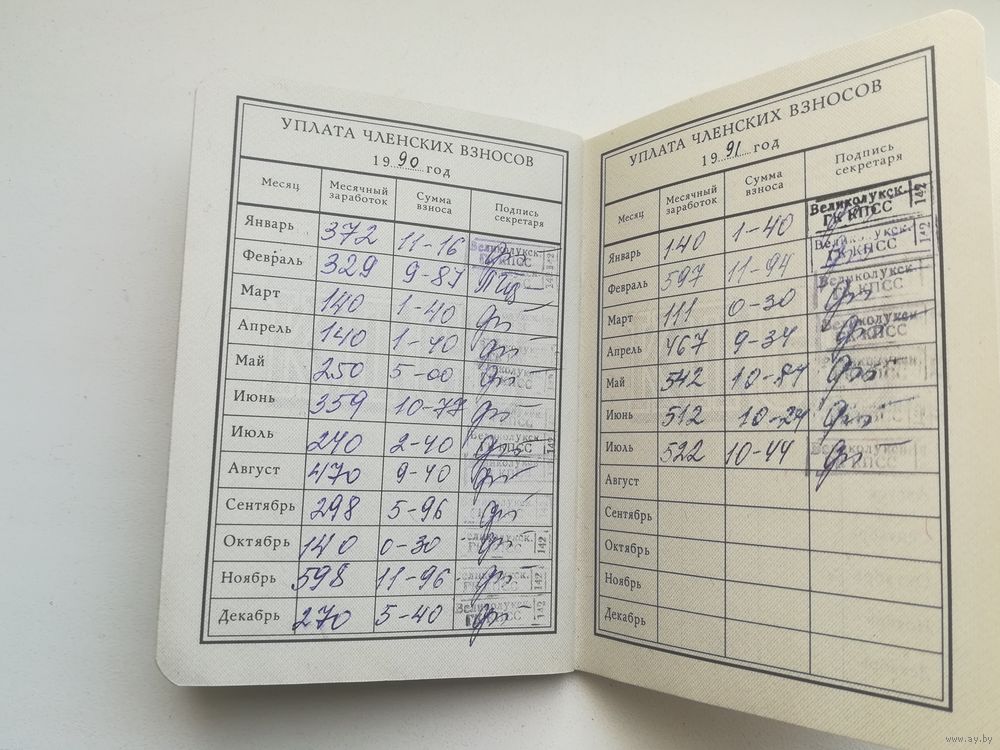 УПЛАТА ЧЛЕНСКИХ ВЗНОСОВ
1990 год
Месяц Месячный заработок Сумма взноса Подпись секретаря
Январь 372 11-16 Великолукск. ГК КПСС 142
Февраль 329 9-87
Март 140 1-40
Апрель 140 1-40
Май 250 5-00
Июнь 359 10-77
Июль 240 2-40
Август 470 9-40
Сентябрь 298 5-96
Октябрь 140 0-30 142
Ноябрь 598 11-96 142
Декабрь 270 5-40 Великолукск. ГК КПСС 142
УПЛАТА ЧЛЕНСКИХ ВЗНОСОВ
1991 год
Месяц Месячный заработок Сумма взноса Подпись секретаря
Январь 140 1-40 Великолукск. ГК КПСС 142
Февраль 597 11-94 Великолукск. ГК КПСС 142
Март 111 0-30 Великолукск. ГК КПСС
Апрель 467 9-34 Великолукск. ГК КПСС
Май 542 10-84
Июнь 512 10-24
Июль 522 10-44 Великолукск. ГК КПСС
Август
Сентябрь
Октябрь
Ноябрь
Декабрь
www.ay.by